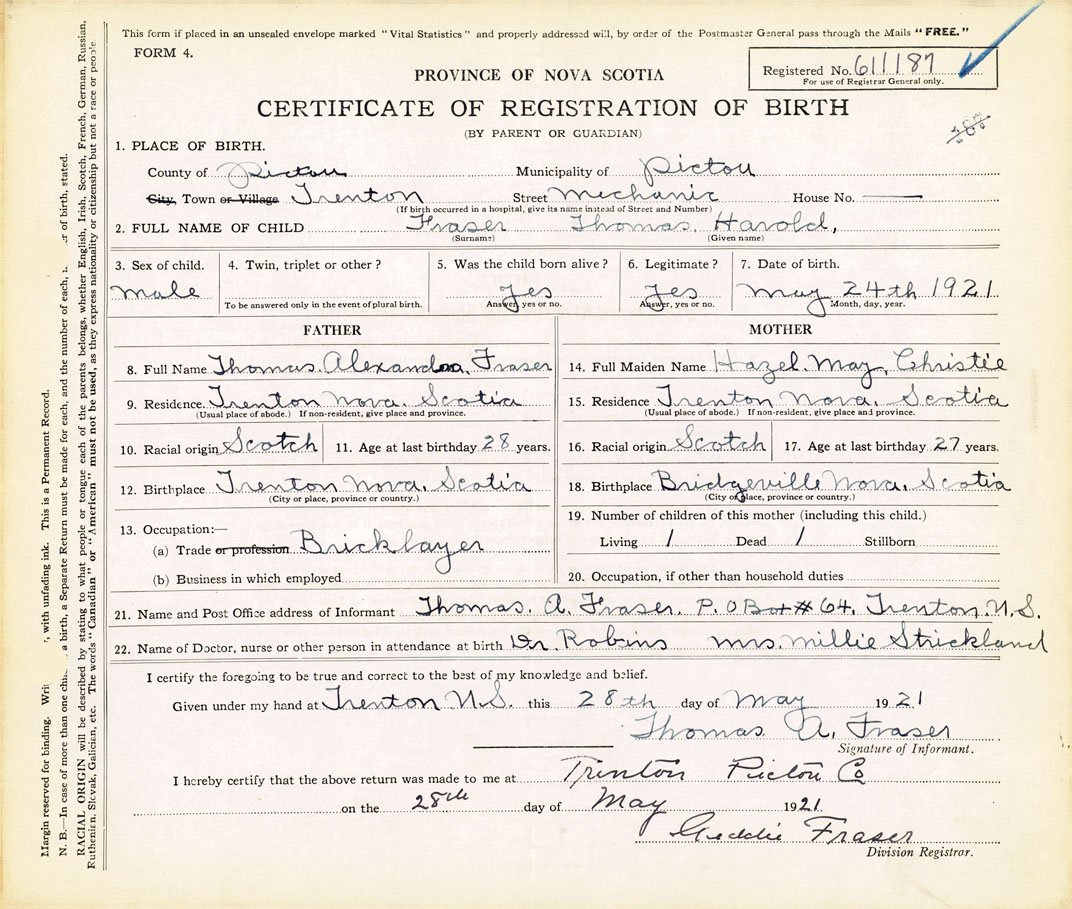 This form if placed in an unsealed envelope marked "Vital Statistics" and properly addressed will, by order of the Postmaster General pass through the Mails "FREE."
FORM 4.
Registered No. 611187
For use of Registrar General only.
PROVINCE OF NOVA SCOTIA
CERTIFICATE OF REGISTRATION OF BIRTH
(BY PARENT OR GUARDIAN)
1. PLACE OF BIRTH.
County of Pictou Municipality of Pictou
City, Town or Village Trenton Street Mechanic House No.
(If birth occurred in a hospital, give its name instead of Street and Number)
2. FULL NAME OF CHILD Fraser Thomas. Harold,
(Surname) (Given name)
3. Sex of child. 4. Twin, triplet or other? 5. Was the child born alive? 6. Legitimate? 7. Date of birth.
male Yes Yes May 24th 1921
To be answered only in the event of plural birth. Answer, yes or no. Answer, yes or no. Month, day, year.
FATHER
8. Full Name Thomas. Alexander. Fraser
9. Residence. Trenton Nova. Scotia
(Usual place of abode.) If non-resident, give place and province.
10. Racial origin Scotch 11. Age at last birthday 28 years.
12. Birthplace Trenton Nova. Scotia
(City or place, province or country.)
13. Occupation:—
(a) Trade or profession Bricklayer
(b) Business in which employed
MOTHER
14. Full Maiden Name Hazel. May, Christie
15. Residence Trenton Nova. Scotia
(Usual place of abode.) If non-resident, give place and province.
16. Racial origin Scotch 17. Age at last birthday 27 years.
18. Birthplace Bridgeville Nova. Scotia
(City or place, province or country.)
19. Number of children of this mother (including this child.)
Living 1 Dead 1 Stillborn
20. Occupation, if other than household duties
21. Name and Post Office address of Informant Thomas. A. Fraser. P. O Box # 64. Trenton. N.S.
22. Name of Doctor, nurse or other person in attendance at birth Dr. Robins Mrs. Millie Strickland
I certify the foregoing to be true and correct to the best of my knowledge and belief.
Given under my hand at Trenton N.S. this 28th day of May 1921
Thomas A. Fraser
Signature of Informant.
I hereby certify that the above return was made to me at Trenton Pictou Co
on the 28th day of May 1921
Geddie Fraser
Division Registrar.
Margin reserved for binding. with unfading ink. This is a Permanent Record.
N. B.—In case of more than one a birth, a Separate Return must be made for each, and the number of each, of birth, stated.
RACIAL ORIGIN will be described by stating to what people or tongue each of the parents belongs, whether English, Irish, Scotch, French, German, Russian,
Ruthenian, Slovak, Galician, etc. The words "Canadian" or "American" must not be used, as they express nationality or citizenship but not a race or people.